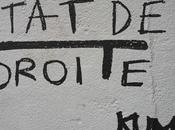 TAT DE
DROITE